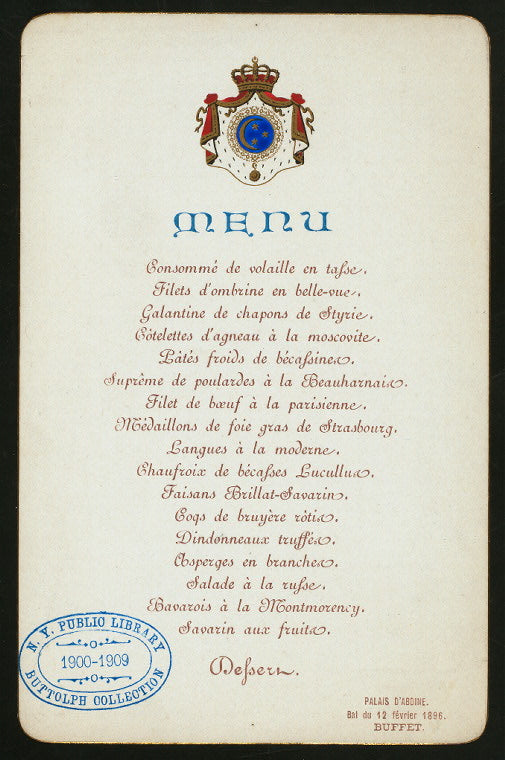 MENU
Consommé de volaille en tasse.
Filets d'ombrine en belle-vue.
Galantine de chapons de Styrie.
Côtelettes d'agneau à la moscovite.
Pâtés froids de bécassines.
Suprême de poulardes à la Beauharnais.
Filet de bœuf à la parisienne.
Médaillons de foie gras de Strasbourg.
Langues à la moderne.
Chaufroix de bécasses Lucullus.
Faisans Brillat-Savarin.
Coqs de bruyère rôtis.
Dindonneaux truffés.
Asperges en branches.
Salade à la russe.
Bavarois à la Montmorency.
Savarin aux fruits.
Dessert.
N. Y. PUBLIC LIBRARY
1900-1909
BUTTOLPH COLLECTION
PALAIS D'ABDINE.
Bal du 12 février 1896.
BUFFET.